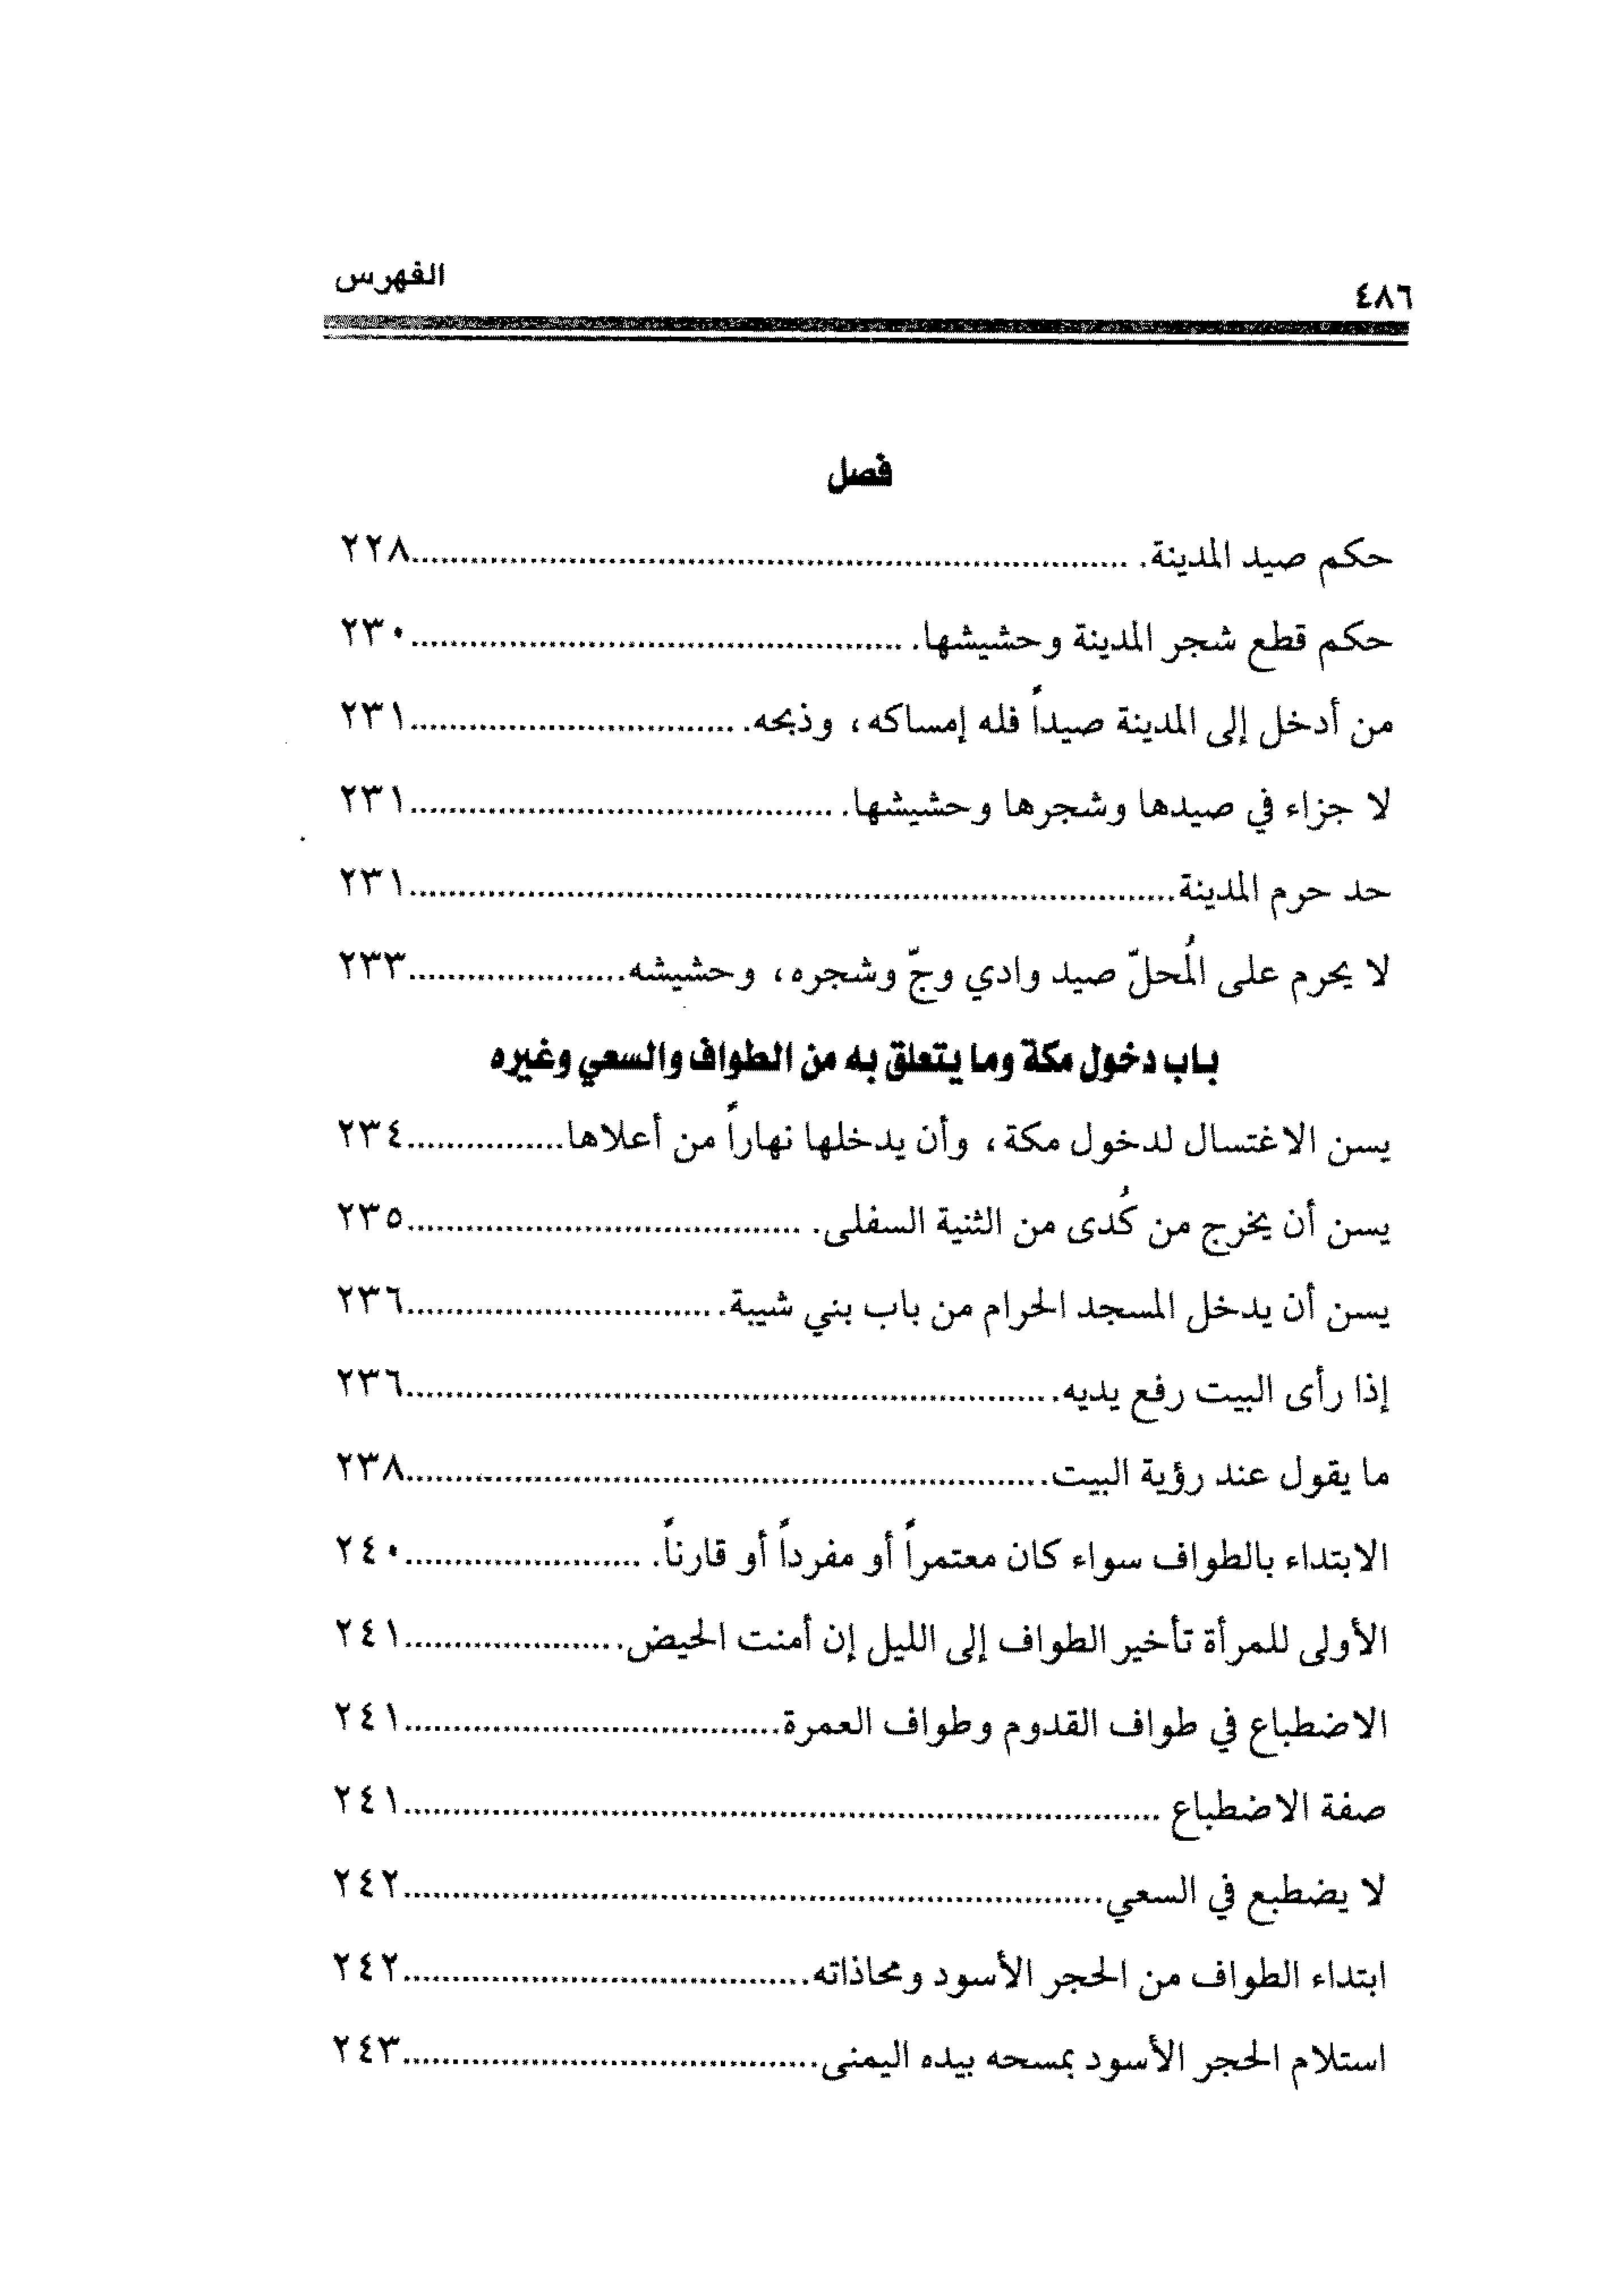 ٤٨٦
الفهرس
فصل
حكم صيد المدينة. ........................................ ٢٢٨
حكم قطع شجر المدينة وحشيشها. ........................................ ٢٣٠
من أدخل إلى المدينة صيداً فله إمساكه، وذبحه. ........................................ ٢٣١
لا جزاء في صيدها وشجرها وحشيشها. ........................................ ٢٣١
حد حرم المدينة ........................................ ٢٣١
لا يحرم على المُحلّ صيد وادي وجّ وشجره، وحشيشه ........................................ ٢٣٣
باب دخول مكة وما يتعلق به من الطواف والسعي وغيره
يسن الاغتسال لدخول مكة، وأن يدخلها نهاراً من أعلاها ........................................ ٢٣٤
يسن أن يخرج من كُدى من الثنية السفلى. ........................................ ٢٣٥
يسن أن يدخل المسجد الحرام من باب بني شيبة. ........................................ ٢٣٦
إذا رأى البيت رفع يديه. ........................................ ٢٣٦
ما يقول عند رؤية البيت ........................................ ٢٣٨
الابتداء بالطواف سواء كان معتمراً أو مفرداً أو قارناً. ........................................ ٢٤٠
الأولى للمرأة تأخير الطواف إلى الليل إن أمنت الحيض ........................................ ٢٤١
الاضطباع في طواف القدوم وطواف العمرة ........................................ ٢٤١
صفة الاضطباع ........................................ ٢٤١
لا يضطبع في السعي ........................................ ٢٤٢
ابتداء الطواف من الحجر الأسود ومحاذاته ........................................ ٢٤٢
استلام الحجر الأسود بمسحه بيده اليمنى ........................................ ٢٤٣